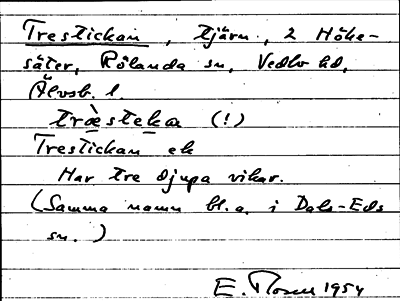 Trestickan, tjärn, 2 Höke-
säter, Rölanda sn, Vedbo hd,
Älvsb. l.
træ̀steka (!)
Trestickan ek
Har tre djupa vikar.
(Samma namn bl.a. i Dals-Eds
sn.)
E. 1954